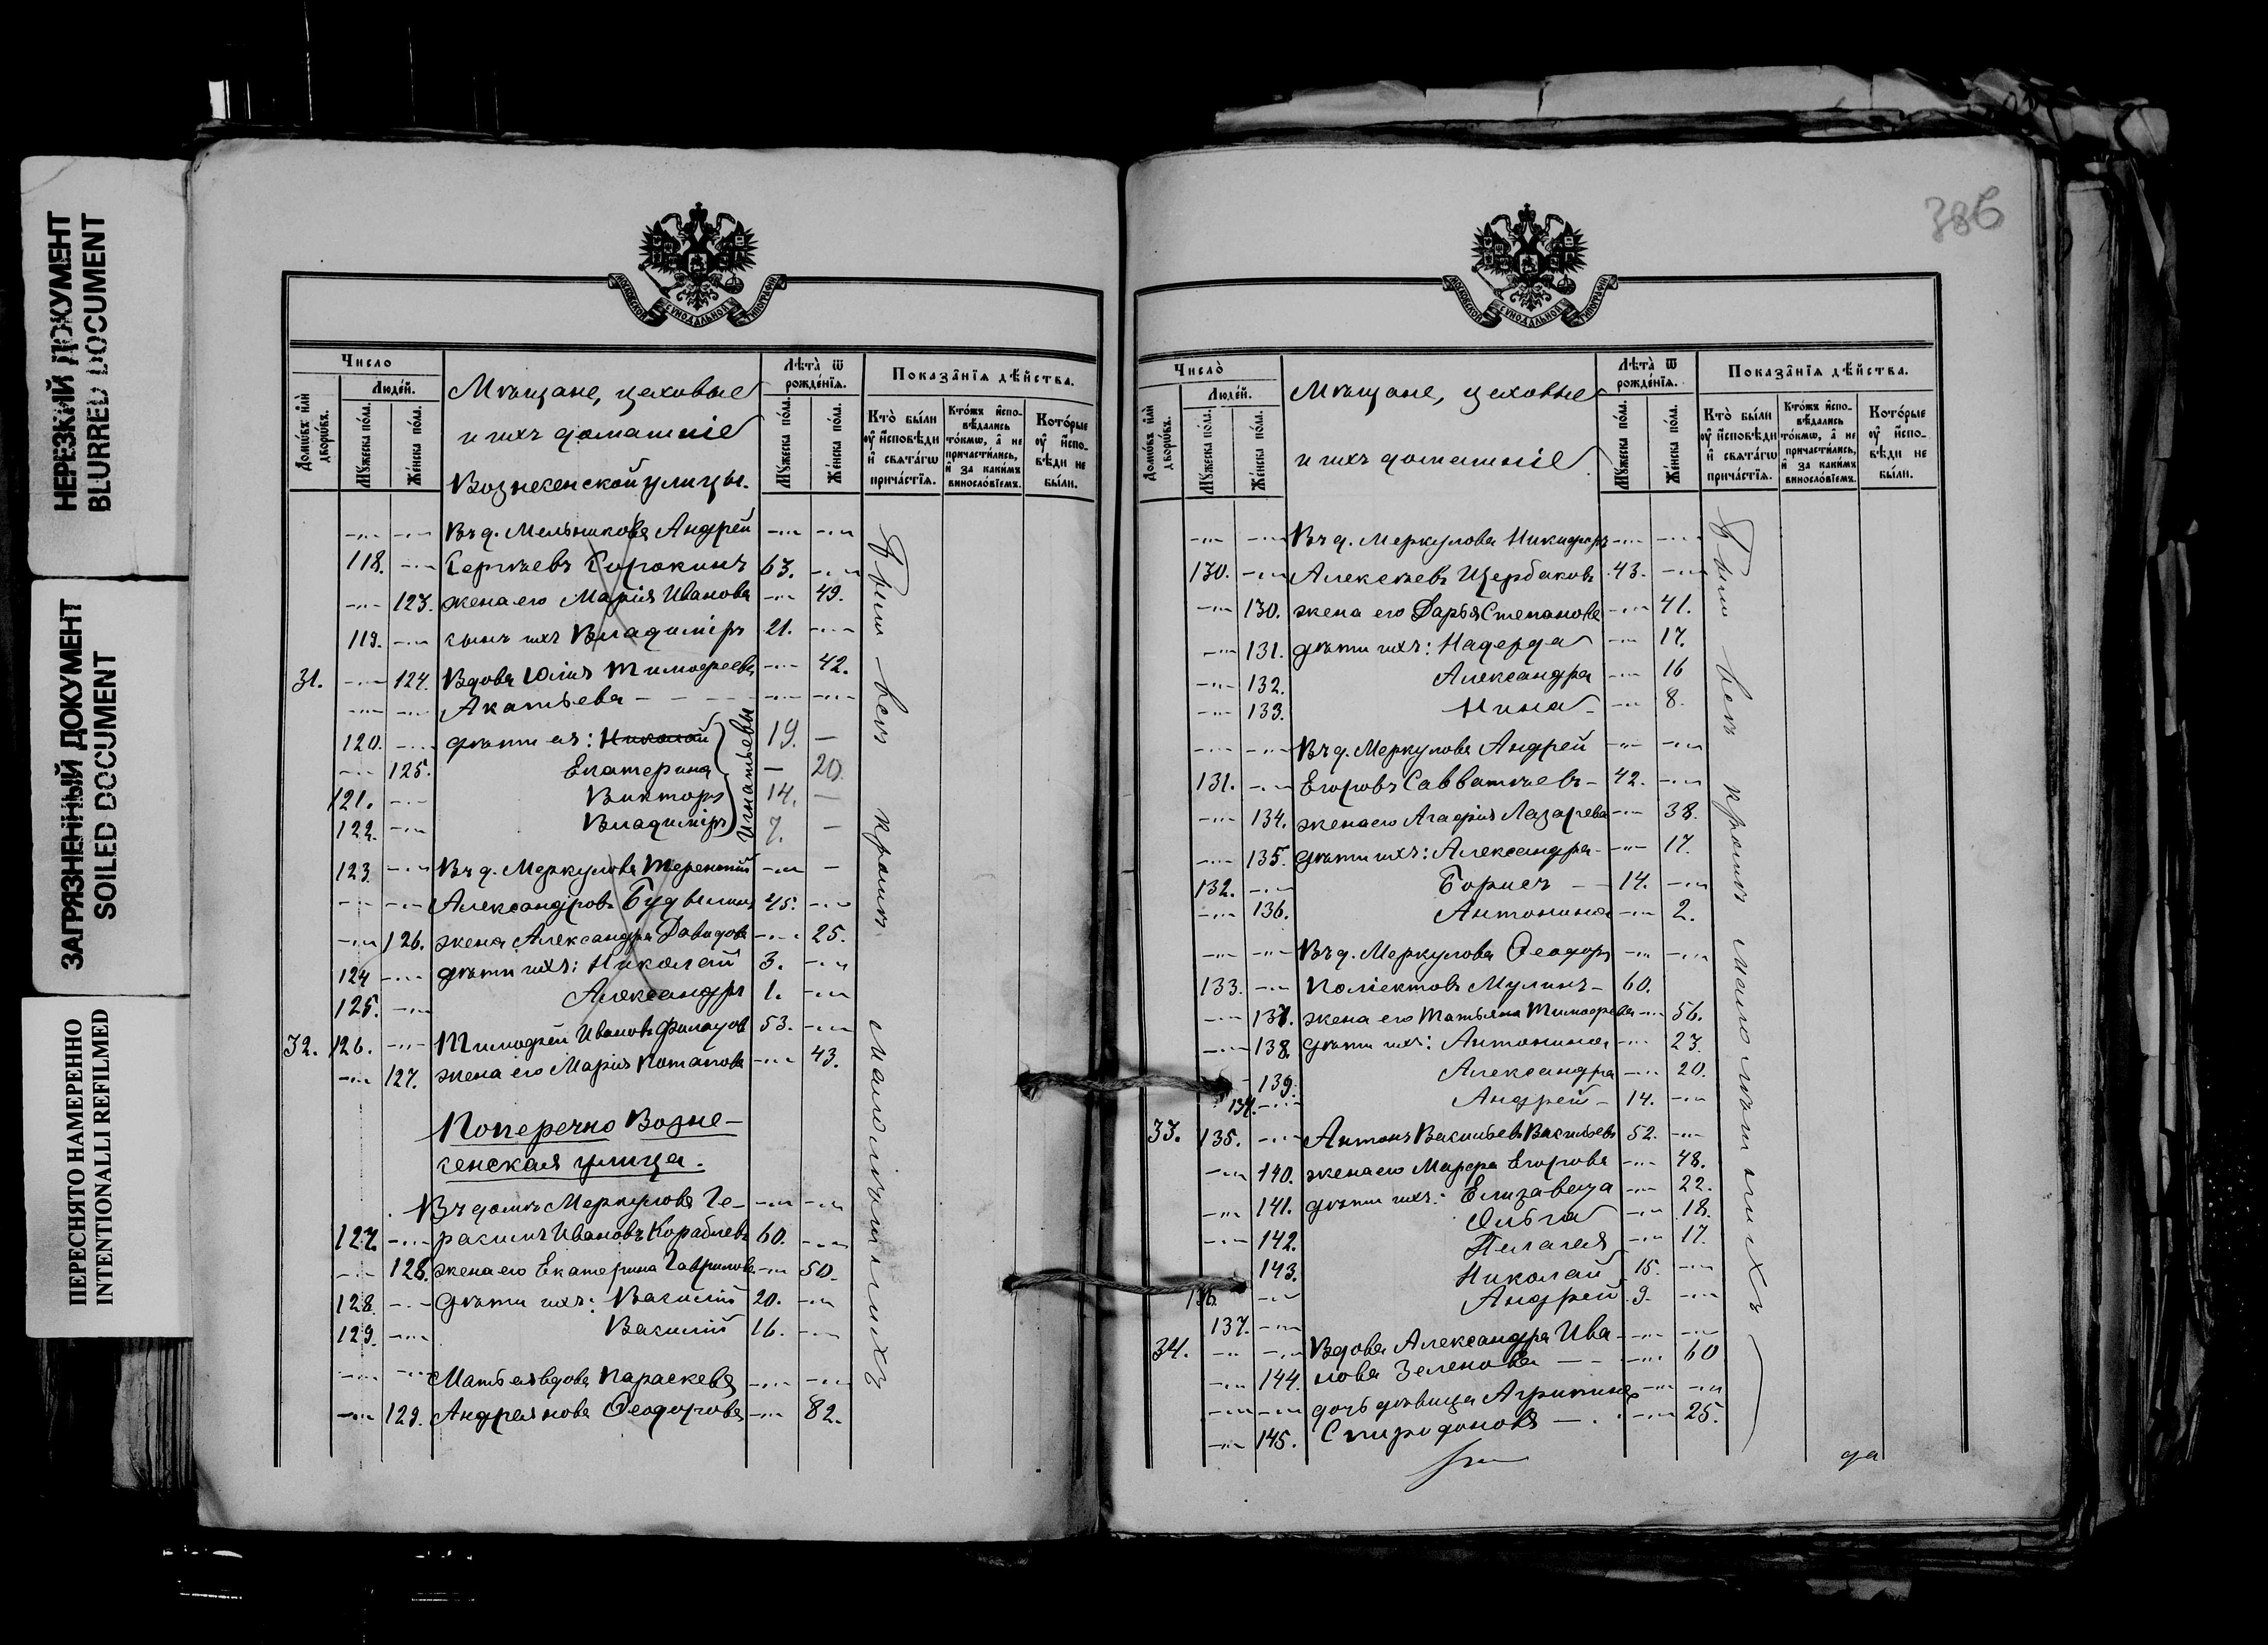 НЕРЕЗКИЙ ДОКУМЕНТ
BLURRED DOCUMENT
ЗАГРЯЗНЕННЫЙ ДОКУМЕНТ
SOILED DOCUMENT
ПЕРЕСНЯТО НАМЕРЕННО
INTENTIONALLI REFILMED
МОСКОВСКОЙ СѴНОДАЛЬНОЙ ТИПОГРАФІИ
Число
Людей.
Домовъ или дворовъ.
Мужеска пола.
Женска пола.
Мѣщане, цеховые
и ихъ домашніе
Вознесенской улицы.
Лѣта ѿ рожденія.
Мужеска пола.
Женска пола.
Показанія дѣйства.
Кто были оу исповѣди и святагω причастія.
Ктожъ исповѣдались токмω, а не причастились, и за какимъ винословіемъ.
Которые оу исповѣди не были.
Въ д. Мельникова Андрей
118. Сергѣевъ Сорокинъ 63.
123. жена его Марія Иванова 49.
119. сынъ ихъ Владиміръ 21.
31. 124. Вдова Юлія Тимофеева 42.
Акатьева
120. дѣти ея: Николай 19.
125. Екатерина 20.
121. Викторъ 14.
122. Владиміръ 7.
Игнатьевы
123. Въ д. Меркулова Терентій
Александровъ 45.
126. жена Александра Давидова 25.
124 дѣти ихъ: Николай 3.
125. Александръ 1.
32. 126. Тимофей Ивановъ 53.
127. жена его Марія Потапова 43.
Поперечно Возне-
сенская улица.
Въ домѣ Меркулова Ге-
127. расимъ Ивановъ Кораблевъ 60.
128. жена его Екатерина Гаврилова 50.
128. дѣти ихъ: Василій 20.
129. Василій 16.
Мать ея вдова Параскева
129. Андреянова Ѳеодорова 82.
Были всѣ кромѣ малолѣтнихъ
386
МОСКОВСКОЙ СѴНОДАЛЬНОЙ ТИПОГРАФІИ
Число
Людей.
Домовъ или дворовъ.
Мужеска пола.
Женска пола.
Мѣщане, цеховые
и ихъ домашніе
Лѣта ѿ рожденія.
Мужеска пола.
Женска пола.
Показанія дѣйства.
Кто были оу исповѣди и святагω причастія.
Ктожъ исповѣдались токмω, а не причастились, и за какимъ винословіемъ.
Которые оу исповѣди не были.
Въ д. Меркулова Никифоръ
130. Алексѣевъ Щербаковъ 43.
130. жена его Дарья Степанова 41.
131. дѣти ихъ: Надежда 17.
132. Александра 16
133. Нина 8.
Въ д. Меркулова Андрей
131. Егоровъ Савватѣевъ 42.
134. жена его Агафія Лазарева 38.
135. дѣти ихъ: Александра 17.
132. Борисъ 14.
136. Антонина 2.
Въ д. Меркулова Ѳеодоръ
133. Поліектовъ Мулинъ 60.
137. жена его Татьяна Тимофеева 56.
138. дѣти ихъ: Антонина 23.
139. Александра 20.
134. Андрей 14.
33. 135. Антонъ Васильевъ Васильевъ 52.
140. жена его Марфа Егорова 48.
141. дѣти ихъ: Елизавета 22.
142. Ольга 18.
143. Пелагея 17.
136. Николай 15.
137. Андрей 9.
34. Вдова Александра Ива-
144. нова Зеленова 60
дочь дѣвица Агрипина
145. Спиридонова 25.
Были всѣ кромѣ малолѣтнихъ
да